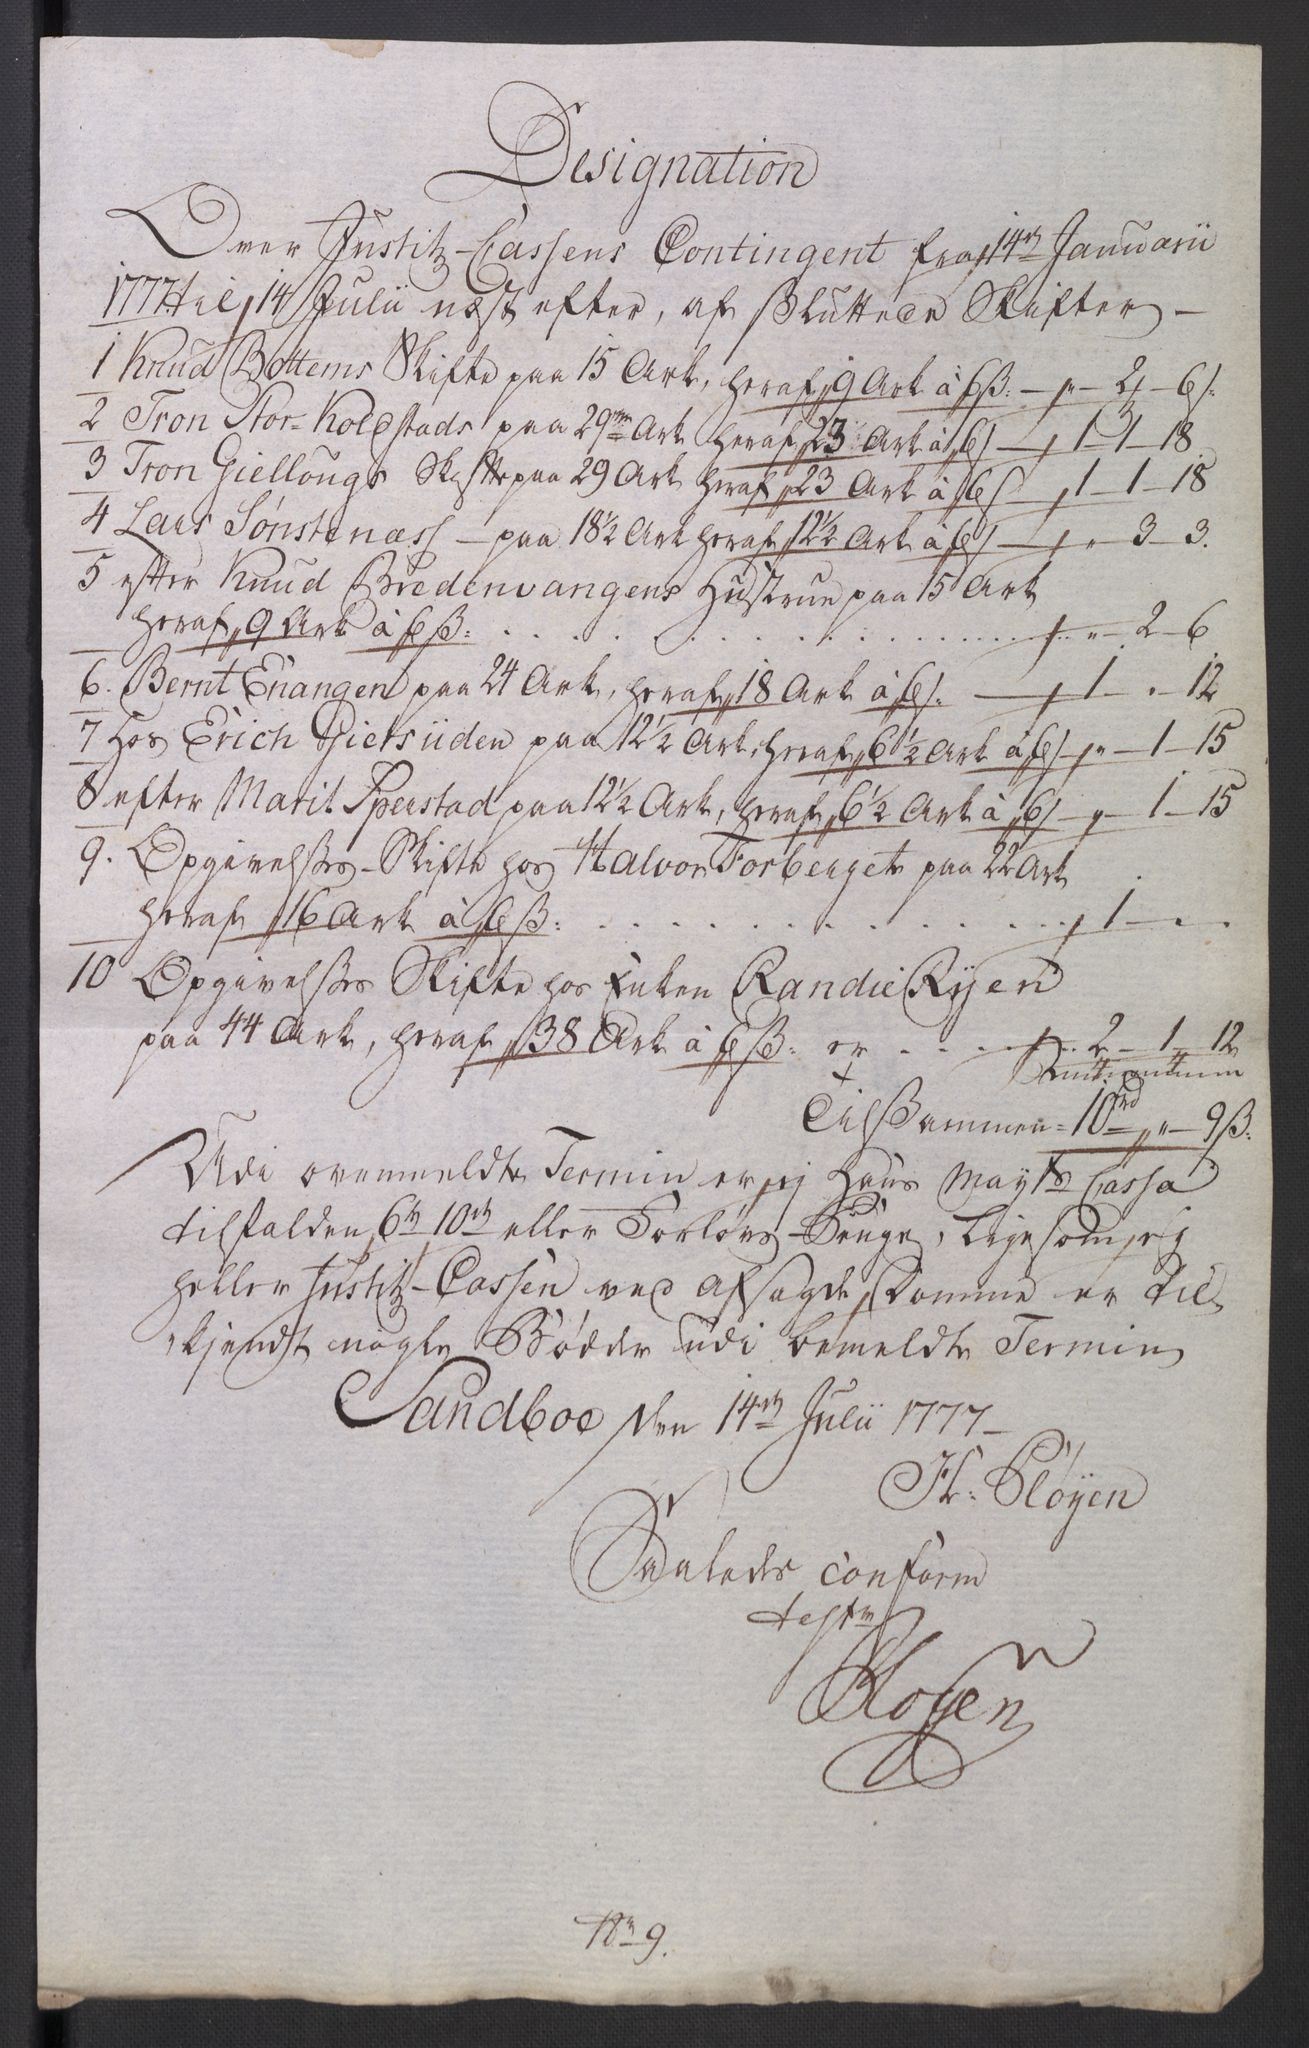 Designation
Over Justitz-Cassens Contingent fra 14de Januarii
1777 til 14 Julii næst efter, af sluttede Skifter –
1 Knud Bottems Skifte paa 15 Ark, heraf 9 Ark à 6ß: – „ – 2 – 6ß:
2 Tron Stor-Kolestads paa 29 Ark heraf 23 Ark à 6ß – 1 – 1 – 18
3 Tron Giellougs Skifte paa 29 Ark heraf 23 Ark à 6ß – 1 – 1 – 18
4 Lars Sønstenæss – paa 18½ Ark heraf 12½ Ark à 6ß – „ – 3 – 3.
5 efter Knud Bredenvangens Hustrue paa 15 Ark
heraf 9 Ark à 6ß: . . . . „ – 2 – 6
6. Bernt Enangen paa 24 Ark, heraf 18 Ark à 6ß. – 1 – „ – 12
7 hos Erich paa 12½ Ark, heraf 6½ Ark à 6ß – „ – 1 – 15
8 efter Marit Sperstad paa 12½ Ark, heraf 6½ Ark à 6ß – „ – 1 – 15
9. Opgivelses-Skifte hos Halvor Forberget paa 22 Ark
heraf 16 Ark à 6ß: . . . . 1 – „ – „
10 Opgivelses Skifte hos Enken Randie Ryen
paa 44 Ark, heraf 38 Ark à 6ß: er . . . . 2 – 1 – 12
Tilsammen = 10rd „ – 9ß:
Udi ovenmeldte Termin er ej Hans Mayts Cassa
tilfalden 6te 10de eller Forlovs-Penge, ligesom ej
heller Justitz-Cassen ved afsagde Domme er til-
kjendt nogle Bøder udi bemeldte Termin
Sandboe den 14de Julii 1777 –
Fr: Pløyen
Saaledes conform
test
Ployen
No 9.